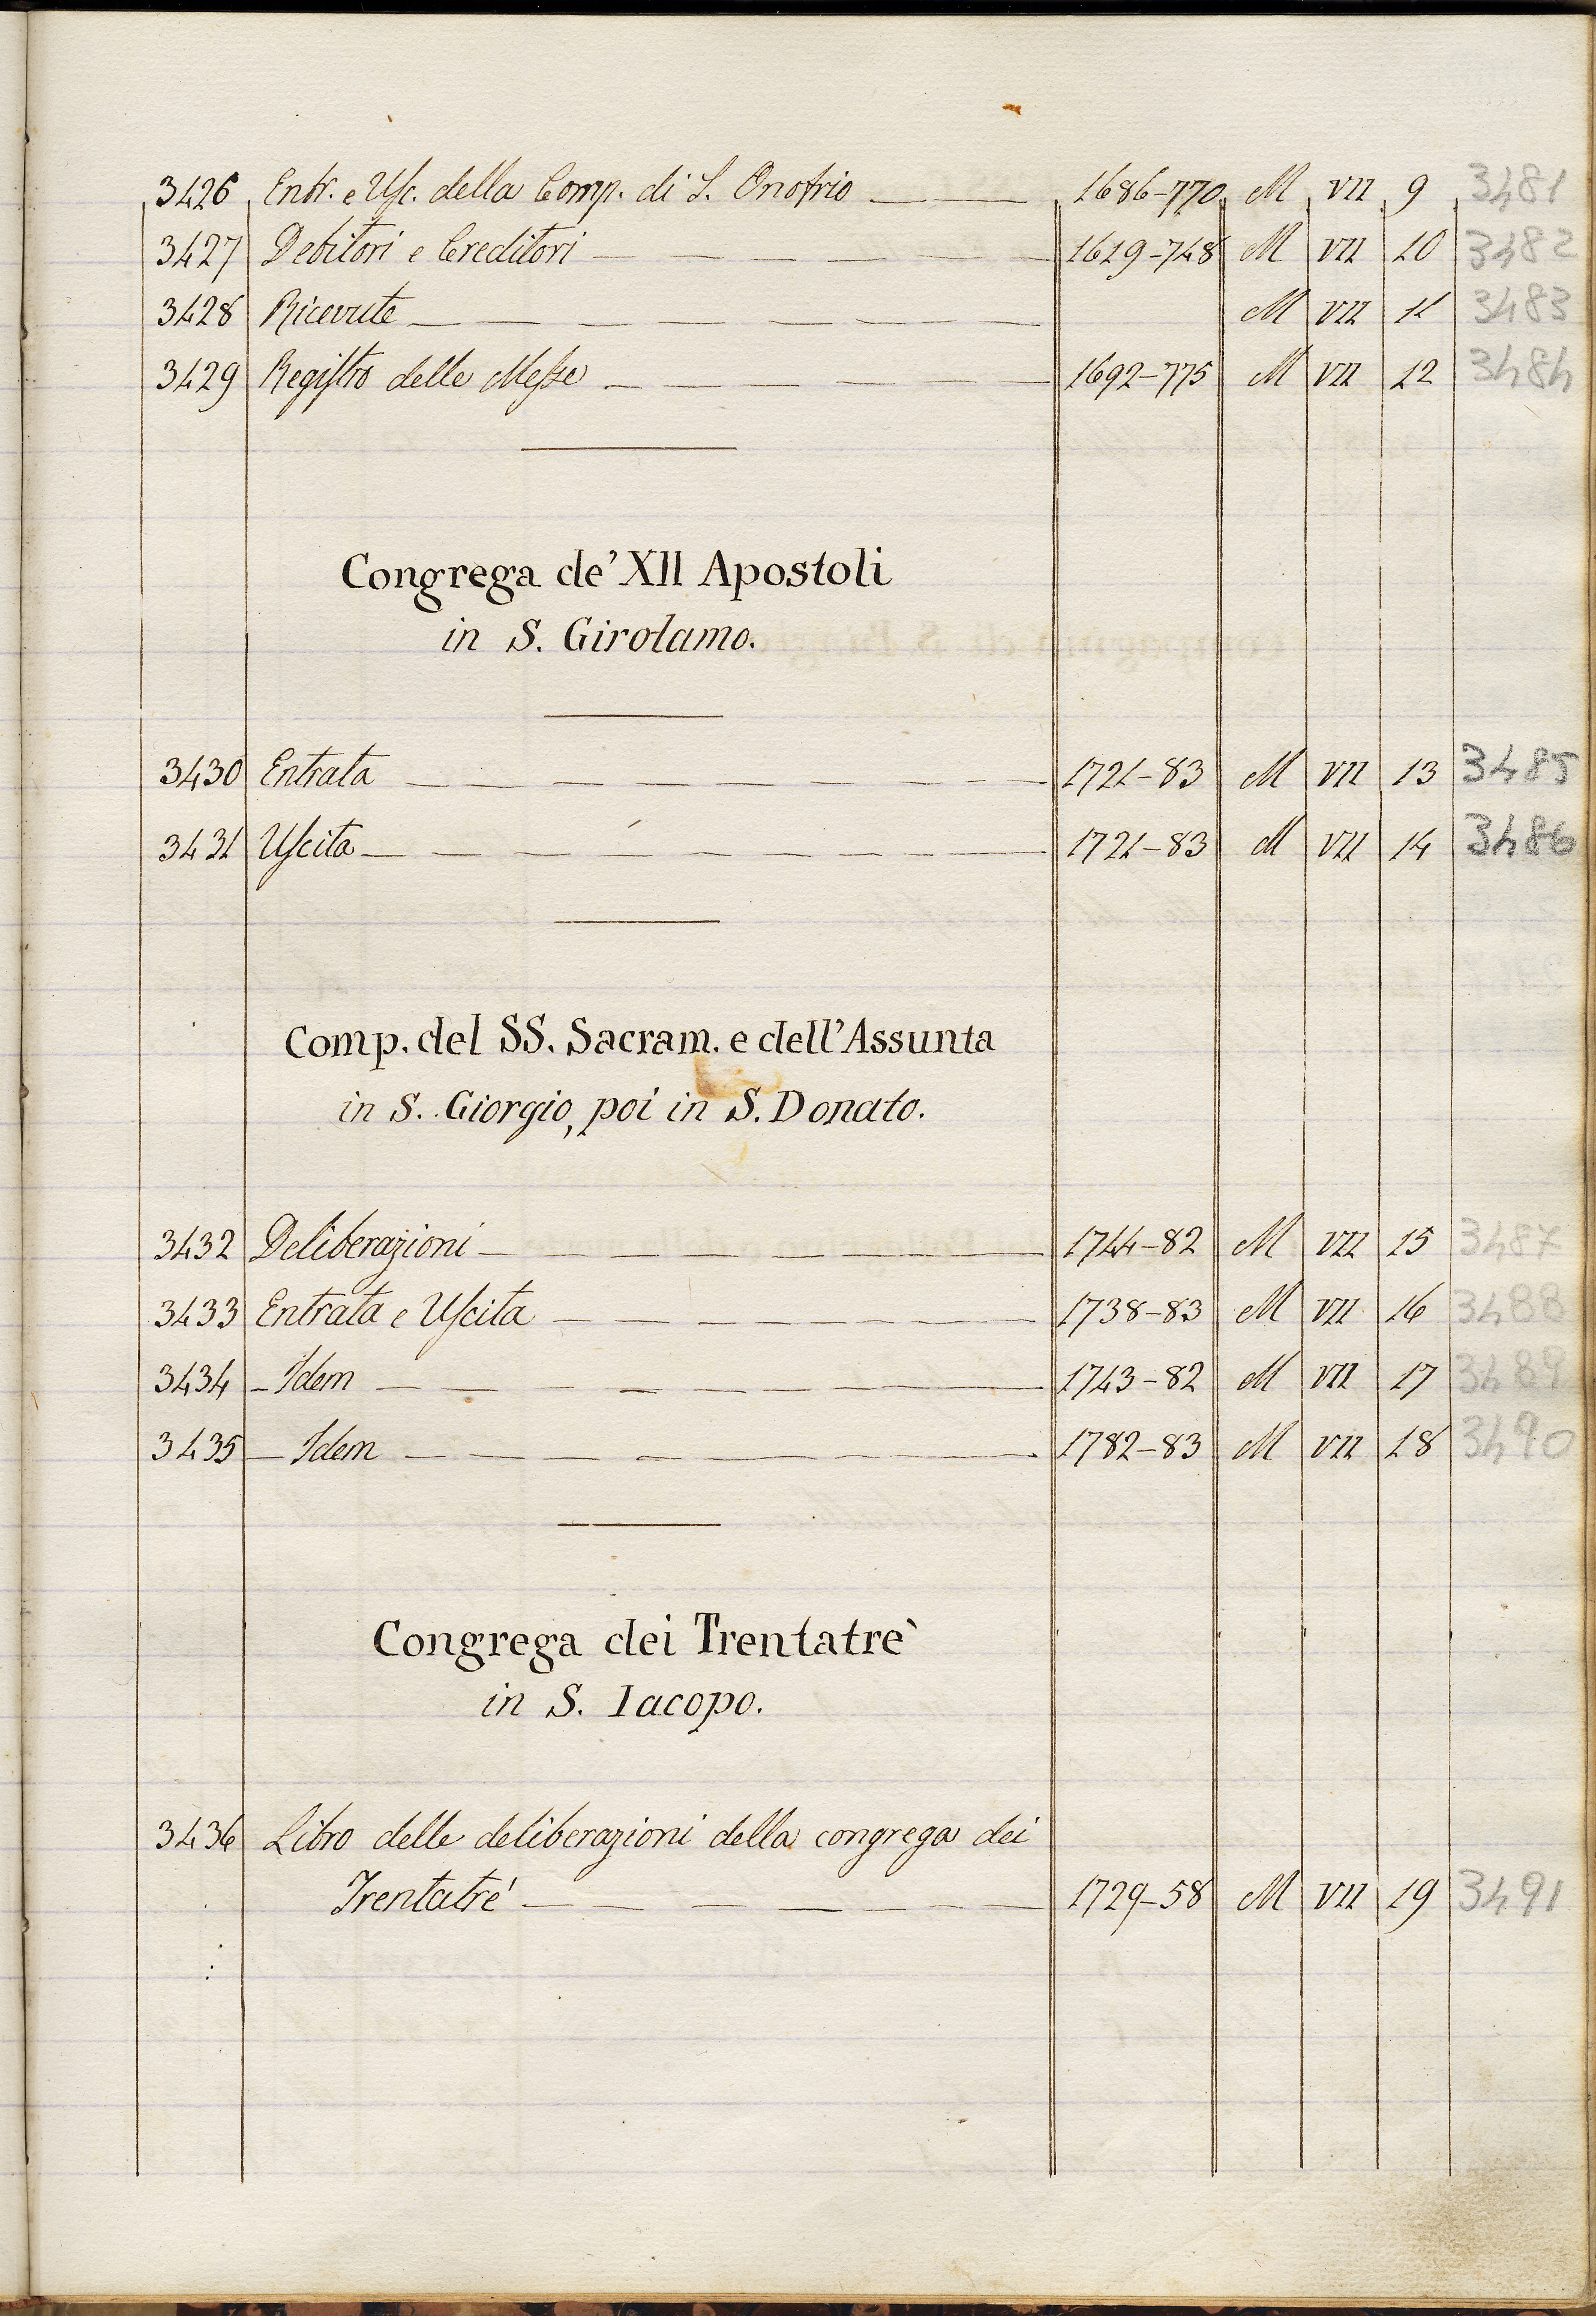 3426 Entr. e Usc. della Comp. di S. Onofrio 1686-770 M VII 9 3481
3427 Debitori e Creditori 1619-748 M VII 10 3482
3428 Ricevute M VII 11 3483
3429 Registro delle Messe 1692-775 M VII 12 3484
Congrega de' XII Apostoli
in S. Girolamo.
3430 Entrata 1721-83 M VII 13 3485
3431 Uscita 1721-83 M VII 14 3486
Comp. del SS. Sacram. e dell'Assunta
in S. Giorgio, poi in S. Donato.
3432 Deliberazioni 1744-82 M VII 15 3487
3433 Entrata e Uscita 1738-83 M VII 16 3488
3434 - Idem 1743-82 M VII 17 3489
3435 - Idem 1782-83 M VII 18 3490
Congrega dei Trentatrè
in S. Iacopo.
3436 Libro delle deliberazioni della congrega dei
Trentatré 1729-58 M VII 19 3491